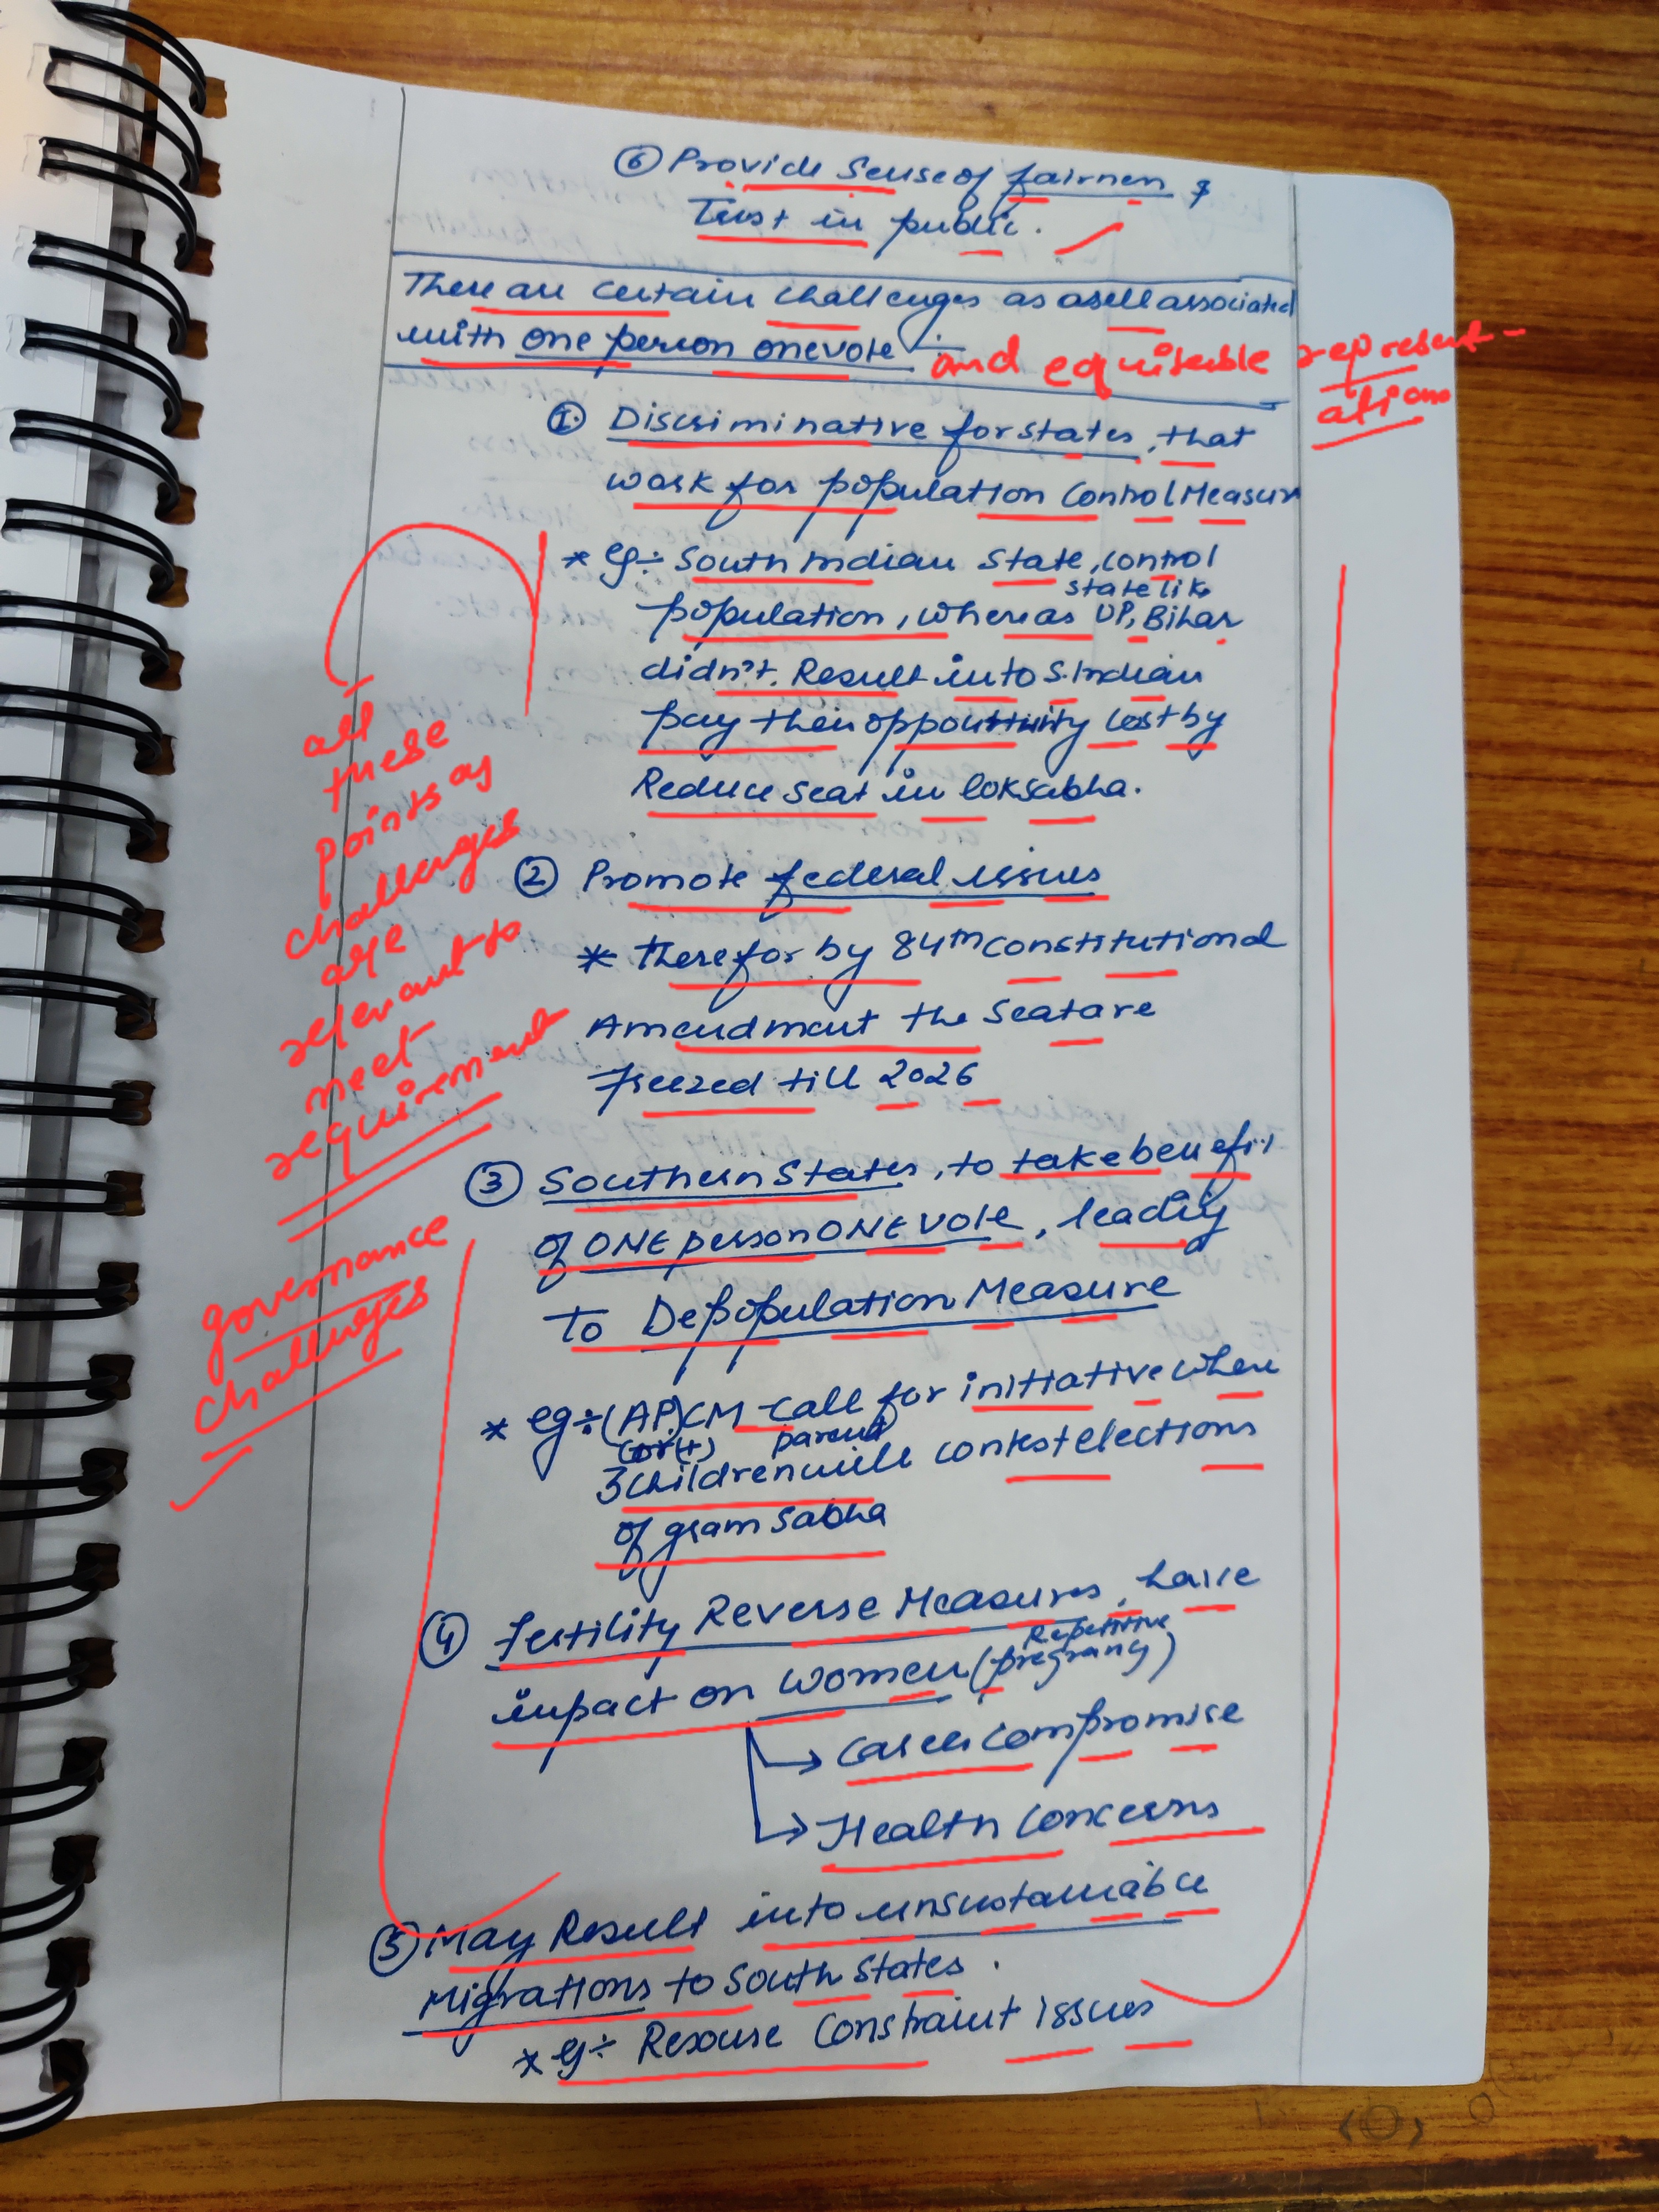 ⑥ Provide Sense of fairness &
Trust in public.
There are certain challenges as well associated
with one person one vote :- and equitable represent-
ations
① Discriminative for states, that
work for population Control Measure
* eg:- South Indian State, control
state like
population, whereas UP, Bihar
didn't. Result into S. Indian
pay their opportunity cost by
Reduce seat in loksabha.
② Promote federal issues
* therefor by 84th constitutional
Amendment the Seat are
freezed till 2026
③ Southern States, to take benefit
of ONE person ONE VOTE, leading
to Depopulation Measure
* eg:- (AP) CM call for initiative when
parent
3 children will contest elections
of gram sabha
④ Fertility Reverse Measures, have
Repetitive
impact on women (pregnancy)
→ Career compromise
→ Health Concerns
⑤ May Result into unsustainable
Migrations to South States.
* eg:- Resouse Constraint issues
all
these
points as
challenges
are
relevant to
meet
requirement
governance
challenges